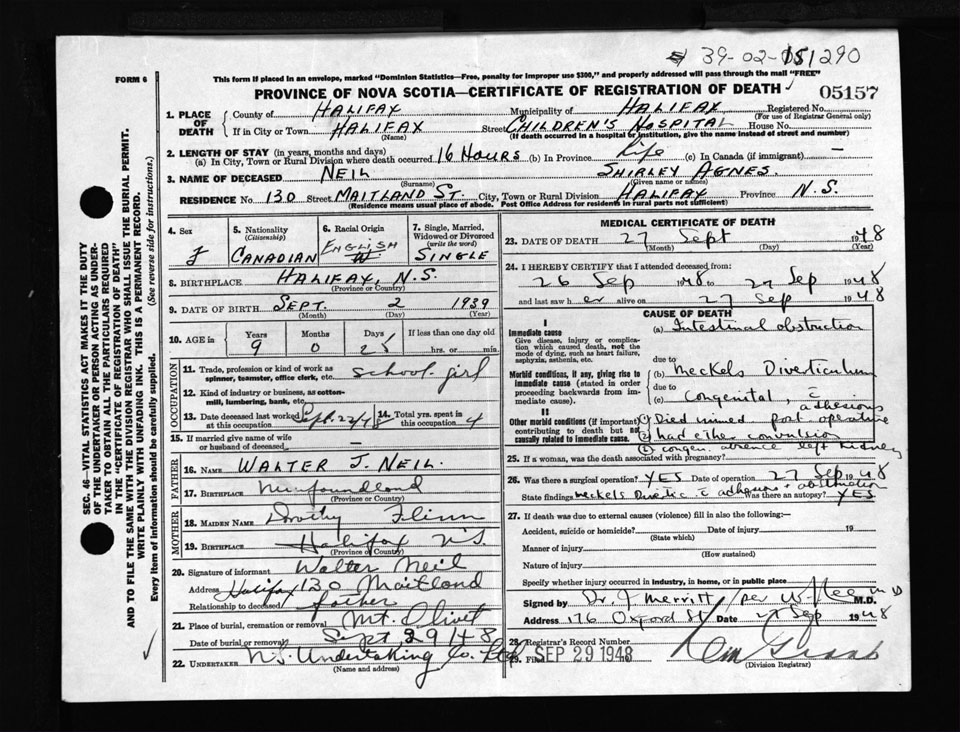 39-02-151290
FORM 6
This form if placed in an envelope, marked "Dominion Statistics—Free, penalty for improper use $300," and properly addressed will pass through the mail "FREE"
PROVINCE OF NOVA SCOTIA—CERTIFICATE OF REGISTRATION OF DEATH
05157
1. PLACE OF DEATH County of HALIFAX Municipality of HALIFAX Registered No.
(For use of Registrar General only)
If in City or Town HALIFAX Street CHILDREN'S HOSPITAL House No.
(Name) (If death occurred in a hospital or institution, give the name instead of street and number)
2. LENGTH OF STAY (in years, months and days)
(a) In City, Town or Rural Division where death occurred 16 HOURS (b) In Province Life (c) In Canada (if immigrant) —
3. NAME OF DECEASED NEIL SHIRLEY AGNES.
(Surname) (Given name or names)
RESIDENCE No. 130 Street MAITLAND ST. City, Town or Rural Division HALIFAX Province N.S.
(Residence means usual place of abode. Post Office Address for residents in rural parts not sufficient)
4. Sex 5. Nationality (Citizenship) 6. Racial Origin 7. Single, Married, Widowed or Divorced (write the word)
f CANADIAN ENGLISH SINGLE
8. BIRTHPLACE HALIFAX, N.S.
(Province or Country)
9. DATE OF BIRTH SEPT. 2 1939
(Month) (Day) (Year)
10. AGE in Years Months Days If less than one day old
9 0 25 hrs. or min.
OCCUPATION
11. Trade, profession or kind of work as spinner, teamster, office clerk, etc. school girl
12. Kind of industry or business, as cotton-mill, lumbering, bank, etc.
13. Date deceased last worked at this occupation Sept. 22/48 14. Total yrs. spent in this occupation 4
15. If married give name of wife or husband of deceased —
FATHER
16. NAME WALTER J. NEIL.
17. BIRTHPLACE Newfoundland
(Province or Country)
MOTHER
18. MAIDEN NAME Dorothy Flinn
19. BIRTHPLACE Halifax N.S.
(Province or Country)
20. Signature of informant Walter Neil
Address Halifax 130 Maitland
Relationship to deceased father
21. Place of burial, cremation or removal Mt. Olivet
Date of burial or removal Sept 29/48
22. UNDERTAKER N.S. Undertaking Co. Ltd
(Name and address)
MEDICAL CERTIFICATE OF DEATH
23. DATE OF DEATH 27 Sept 1948
(Month) (Day) (Year)
24. I HEREBY CERTIFY that I attended deceased from:
26 Sep 1948 to 27 Sep 1948
and last saw her alive on 27 Sep 1948
CAUSE OF DEATH
I
Immediate cause (a) Intestinal obstruction
Give disease, injury or complication which caused death, not the mode of dying, such as heart failure, asphyxia, asthenia, etc.
due to
Morbid conditions, if any, giving rise to immediate cause (stated in order proceeding backwards from immediate cause). (b) Meckels Diverticulum
due to
(c) Congenital, c̄ adhesions
II
Other morbid conditions (if important) contributing to death but not causally related to immediate cause. Died immed. post operative
had ether convulsion
congen. absence left kidney
25. If a woman, was the death associated with pregnancy?
26. Was there a surgical operation? YES Date of operation 27 Sep 1948
State findings Meckels Divertic. c̄ adhesions & obstruction Was there an autopsy? YES
27. If death was due to external causes (violence) fill in also the following:—
Accident, suicide or homicide? Date of injury 19
(State which)
Manner of injury
(How sustained)
Nature of injury
Specify whether injury occurred in industry, in home, or in public place
Signed by Dr. J Merritt / per M.D.
Address 176 Oxford St Date 27 Sep 1948
28. Registrar's Record Number
29. Filed SEP 29 1948
(Division Registrar)
SEC. 46—VITAL STATISTICS ACT MAKES IT THE DUTY
OF THE UNDERTAKER OR PERSON ACTING AS UNDER-
TAKER TO OBTAIN ALL THE PARTICULARS REQUIRED
IN THE "CERTIFICATE OF REGISTRATION OF DEATH"
AND TO FILE THE SAME WITH THE DIVISION REGISTRAR WHO SHALL ISSUE THE BURIAL PERMIT.
WRITE PLAINLY WITH UNFADING INK. THIS IS A PERMANENT RECORD.
Every item of information should be carefully supplied. (See reverse side for instructions.)